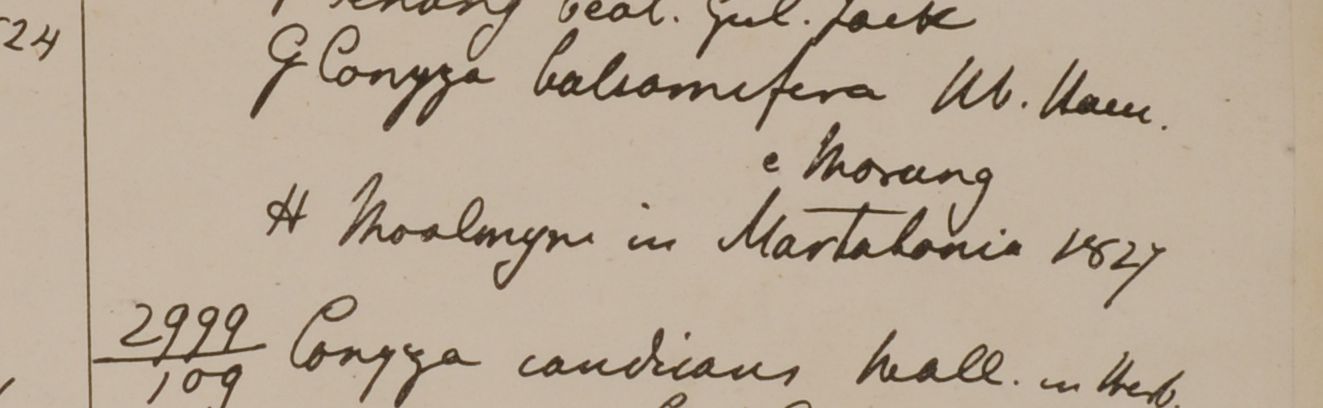 Penang beat. Gul. Jack
24
G Conyza balsamifera Hb. Ham.
e Morung
H Moalmyne in Martabania 1827
2999 Conyza candicans Wall. in Herb.
109